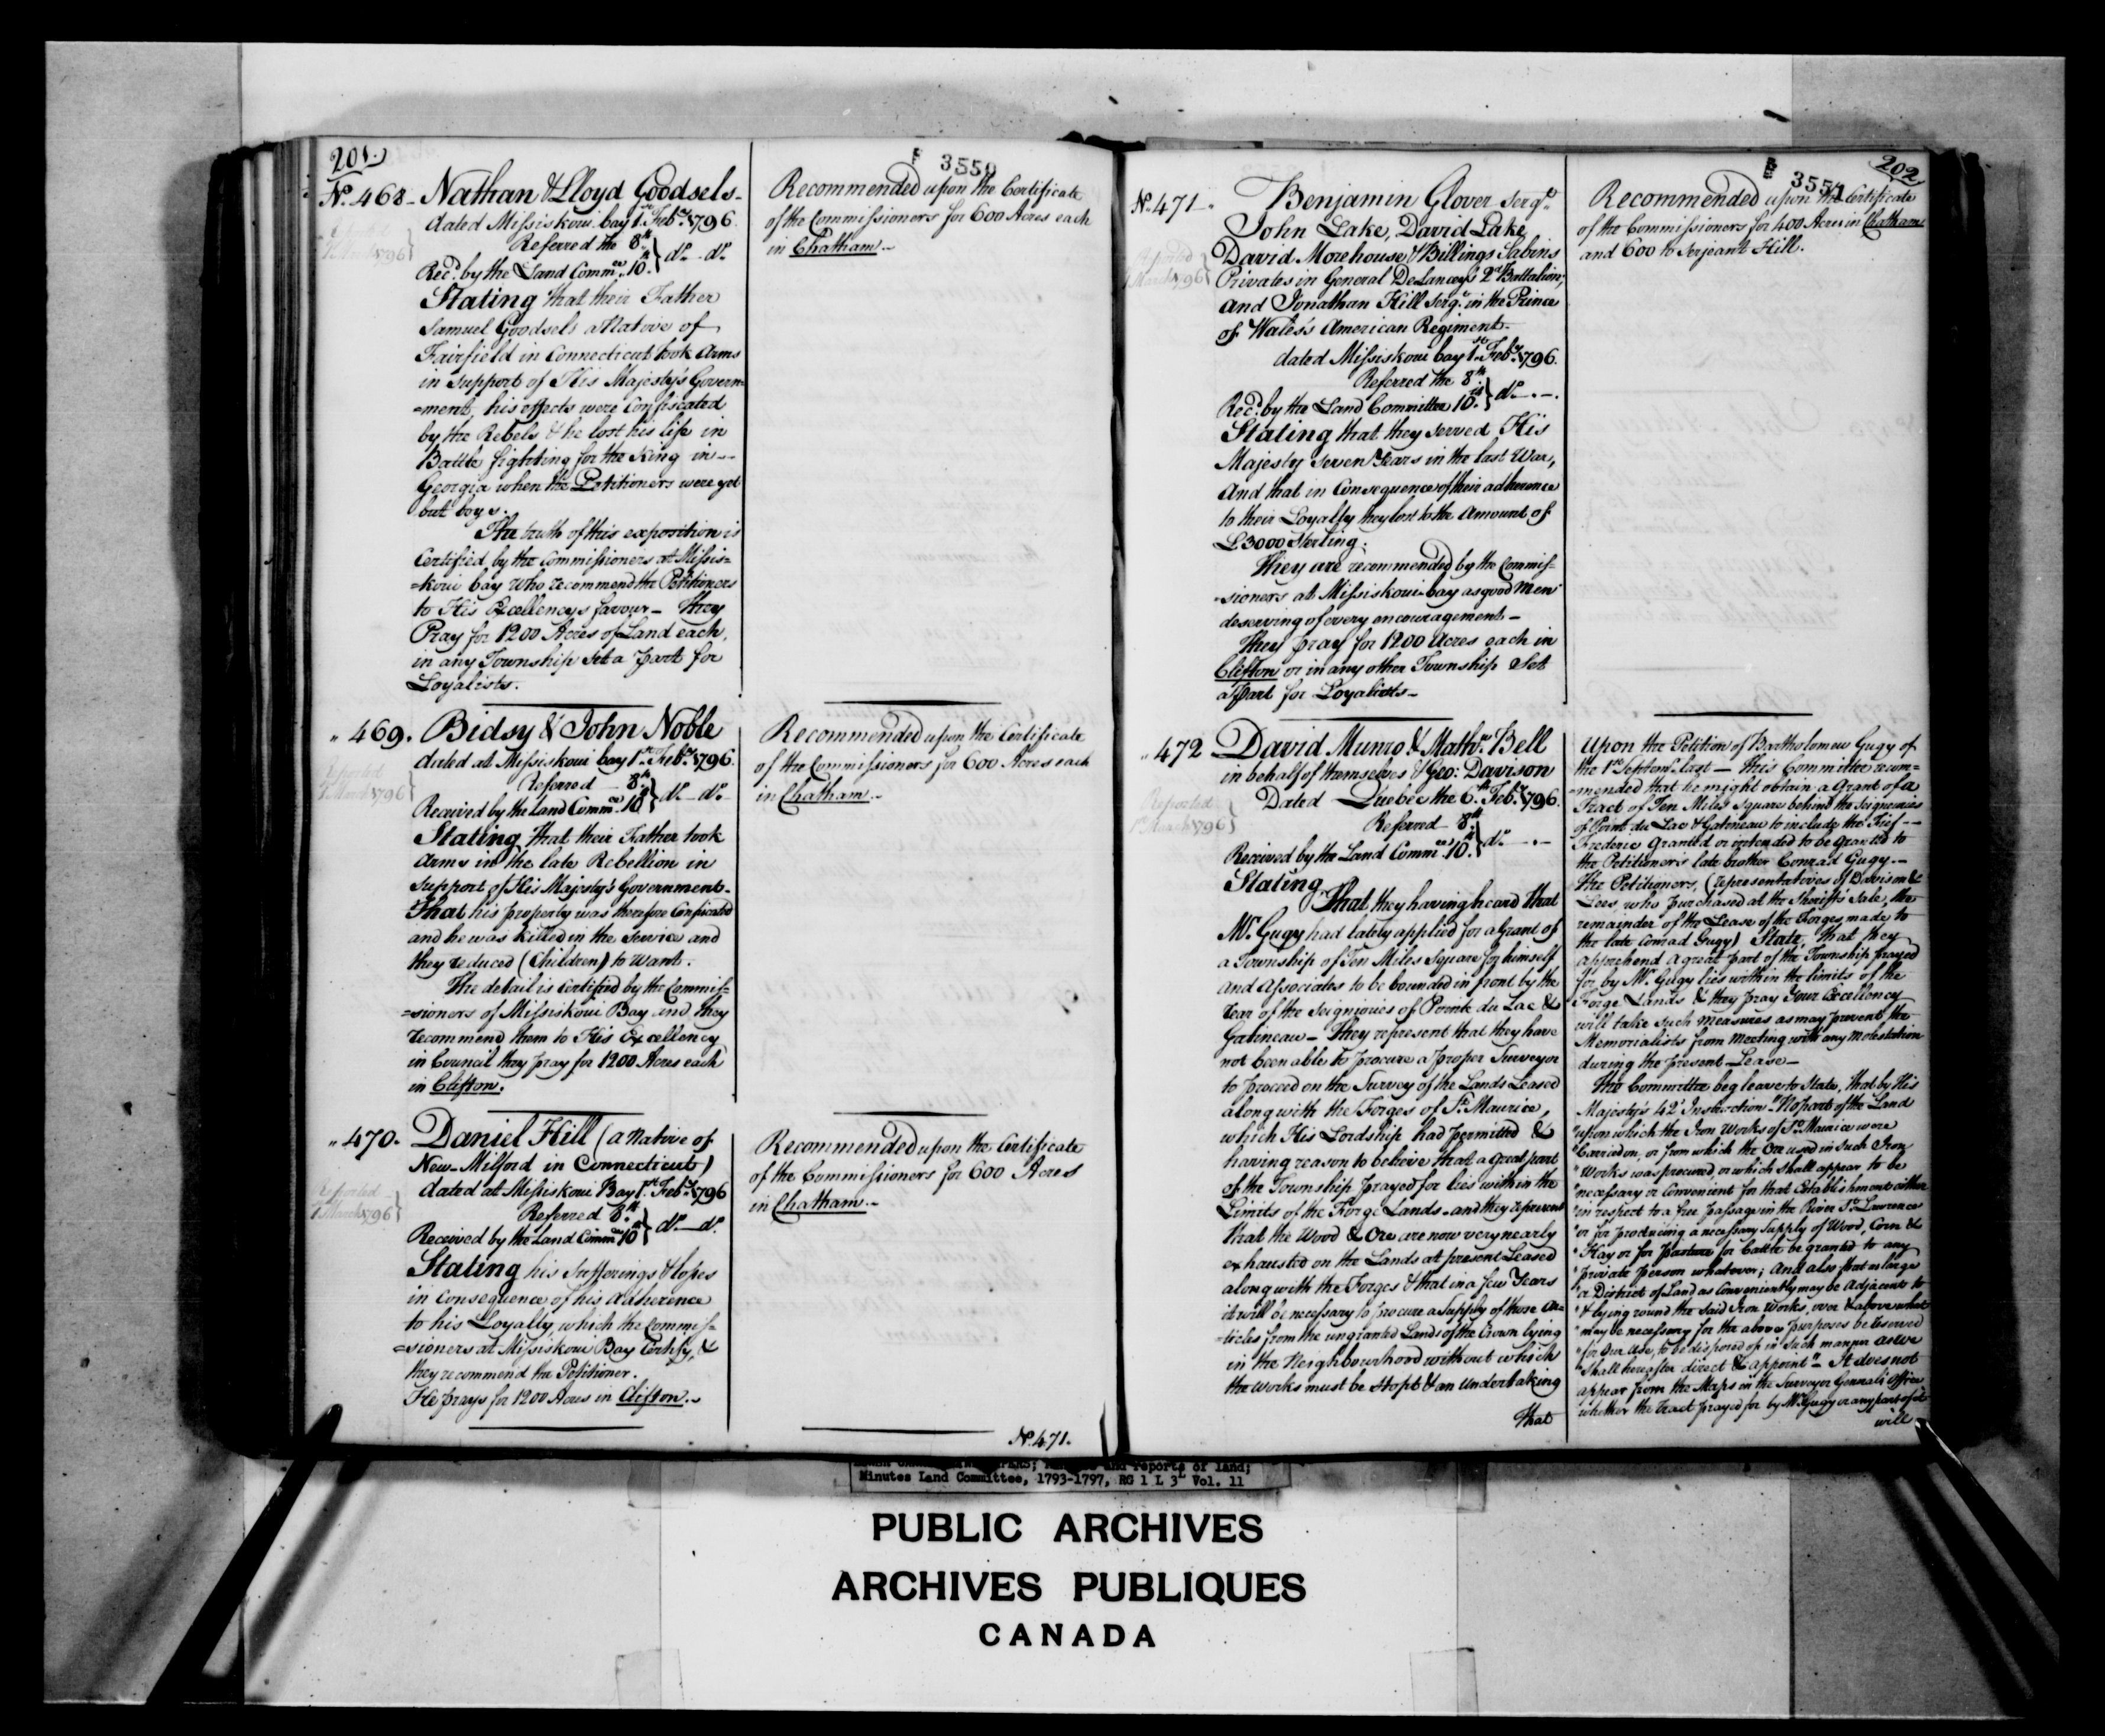 201.
3550
Nº 468 - Nathan & Lloyd Goodsels -
dated Missiskoui bay 1st Feby 1796.
Referred the 8th } do. do.
Recd. by the Land Commee 10th
Stating that their Father
Samuel Goodsels a Native of
Fairfield in Connecticut took Arms
in support of His Majesty's Govern=
=ment, his effects were Confiscated
by the Rebels & he lost his life in
Battle fighting for the King in --
Georgia when the Petitioners were yet
but boys.
The truth of this exposition is
Certified by the Commissioners at Missis=
=koui bay who recommend the Petitioners
to His Excellencys favour - They
Pray for 1200 Acres of Land each,
in any Township Set a part for
Loyalists.
Recommended upon the Certificate
of the Commissioners for 600 Acres each
in Chatham. -
" 469. Bidsy & John Noble
dated at Missiskoui bay 1st Feby 1796.
Reported
1 March 1796 }
Referred 8th } do. do.
Received by the Land Commee 10th
Stating that their Father took
Arms in the late Rebellion in
support of His Majesty's Government -
That his property was therefore Conficated
and he was killed in the Service and
they reduced (Children) to want.
The detail is Certified by the Commis=
=sioners of Missiskoui Bay and they
recommend them to His Excellency
in Council they pray for 1200 Acres each
in Clifton.
Recommended upon the Certificate
of the Commissioners for 600 Acres each
in Chatham. -
" 470. Daniel Hill (a Native of
New-Milford in Connecticut)
dated at Missiskoui Bay 1st Feby 1796
Reported
1 March 1796 }
Referred 8th } do. do.
Received by the Land Commee 10th
Stating his Sufferings & losses
in Consequence of his Adherence
to his Loyalty, which the Commis=
=sioners at Missiskoui Bay Certify, &
they recommend the Petitioner.
He prays for 1200 Acres in Clifton. -
Recommended upon the Certificate
of the Commissioners for 600 Acres
in Chatham. -
Nº 471.
202
3551
Nº 471 - Benjamin Glover Serqt.
John Lake, David Lake,
David Morehouse & Billings Sabins
Privates in General DeLancey's 2d Battalion;
And Jonathan Hill Serqt. in the Prince
of Wales's American Regiment.
dated Missiskoui bay 1st Feby 1796.
Reported
1 March 1796 }
Referred the 8th } do. - . -
Recd. by the Land Committee 10th
Stating that they served His
Majesty seven Years in the last War,
And that in Consequence of their adherence
to their Loyalty they lost to the Amount of
£3000 Sterling.
They are recommended by the Commis=
=sioners at Missiskoui-bay as good Men
deserving of every encouragement -
They pray for 1200 Acres each in
Clifton or in any other Township Set
apart for Loyalists -
Recommended upon the Certificate
of the Commissioners for 400 Acres in Chatham
and 600 to Serjeant Hill.
" 472 David Munro & Mathw. Bell
in behalf of themselves & Geo: Davison
Dated Quebec the 6th Feby 1796.
Reported
1st March 1796 }
Referred 8th } do. - . -
Received by the Land Commee 10th
Stating
That they having heard that
Mr. Gugy had lately applied for a Grant of
a Township of Ten Miles Square for himself
and Associates to be bounded in front by the
rear of the Seigniories of Point du Lac &
Gatineau - They represent that they have
not been able to procure a proper Surveyor
to proceed on the Survey of the Lands Leased
along with the Forges of St. Maurice,
which His Lordship had permitted &
having reason to believe that a great part
of the Township prayed for lies within the
Limits of the Forge Lands - and they represent
that the Wood & Ore are now very nearly
exhausted on the Lands at present Leased
along with the Forges & that in a few Years
it will be necessary to procure a Supply of those Ar=
=ticles from the ungranted Lands of the Crown lying
in the Neighbourhood without which
the works must be stopt & an Undertaking
That
Upon the Petition of Bartholomew Gugy of
the 1st Septemr. last - This Committee recom=
=mended that he might obtain a Grant of a
Tract of Ten Miles Square behind the Seigneuries
of Point du Lac & Gatineau to include the Fief --
Frederic Granted or intended to be granted to
the Petitioners late brother Conrad Gugy. -
The Petitioners, (representatives of Davison &
Lees, who purchased at the Sheriffs Sale, the
remainder of the Lease of the Forges made to
the late Conrad Gugy) State, That they
apprehend a great part of the Township prayed
for by Mr. Gugy lies within the limits of the
Forge Lands & they pray Your Excellency
will take such measures as may prevent the
Memorialists from meeting with any molestation
during the present Lease -
The Committee beg leave to State, that by His
Majesty's 42d Instruction "No part of the Land
"upon which the Iron Works of St. Maurice were
"Carried on, or from which the Ore used in such Iron
"Works was procured, or which shall appear to be
"necessary or Convenient for that Establishment either
"in respect to a free passage in the River St. Lawrence
"or for producing a necessary Supply of Wood, Corn &
"Hay or for Pasture for Cattle be granted to any
"private person whatever; And also that as large
"a District of Land as Conveniently may be Adjacent to
"& lying round the said Iron Works, over & above what
"may be necessary for the above purposes be reserved
"for Our Use, to be disposed of in such manner as We
"shall hereafter direct & appoint" - It does not
appear from the Maps in the Surveyor Generals Office
whether the Tract prayed for by Mr. Gugy or any part of it
will
Minutes Land Committee, 1793-1797, RG 1 L 3L Vol. 11
PUBLIC ARCHIVES
ARCHIVES PUBLIQUES
CANADA